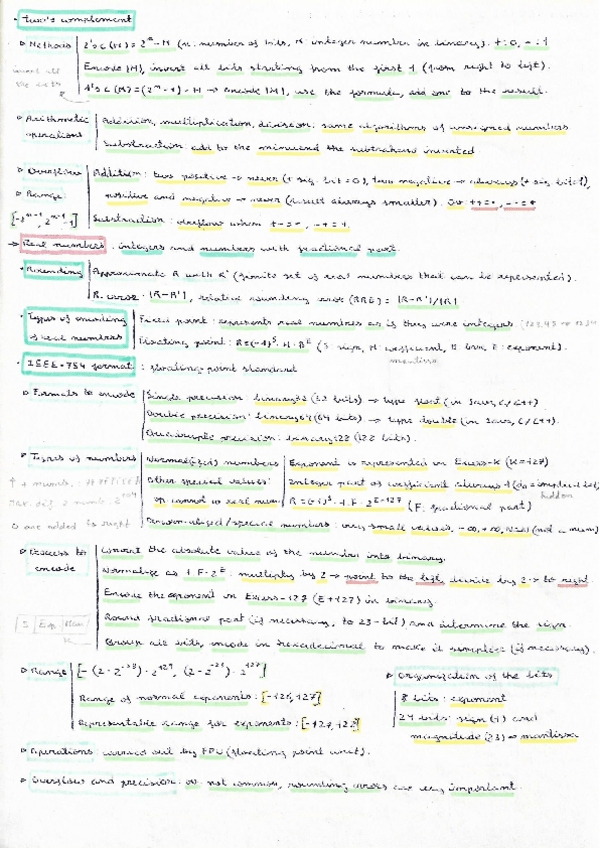 · Two's complement
▹ Methods | 2's c (N) = 2ⁿ - N (n: number of bits, N integer number in binary). +: 0, -: 1
Encode |N|, invert all bits starting from the first 1 (from right to left).
invert all the bits
1's c (N) = (2ⁿ - 1) - N → encode |N|, use the formula, add one to the result.
▹ Arithmetic operations | Addition, multiplication, division: same algorithms of unsigned numbers
Substraction: add to the minuend the subtrahend inverted
▹ Overflow | Addition: two positive → never (+ sig. bit = 0), two negative → always (+ sig. bit 1),
▹ Range | positive and negative → never (result always smaller). OV ++=-, --=+
[-2ⁿ⁻¹, 2ⁿ⁻¹-1] | Substraction: overflow when +-=-, -+=+.
→ Real numbers: integers and numbers with fractional part.
· Rounding | Approximate R with R' (finite set of real numbers that can be represented).
R. error: |R-R'|, relative rounding error (RRE) = |R-R'|/|R|
· Types of encoding of real numbers | Fixed point: represents real numbers as if they were integers
Floating point: R = (-1)^S · M · B^E (S: sign, M: coefficient, B: base, E: exponent).
mantissa
· IEEE-754 format: floating point standard
▹ Formats to encode | Simple precision: binary32 (32 bits) → type float (in Java, C/C++).
Double precision: binary64 (64 bits) → type double (in Java, C/C++).
Quadruple precision: binary128 (128 bits).
▹ Types of numbers | Normal(ized) numbers | Exponent is represented on Excess-K (K=127)
Other special values: | Integer part of coefficient always 1 (do = implied bit)
hidden
OP cannot to real num. | R = (-1)^S · 1.F · 2^(E-127) (F: fractional part)
0 are added to right
Denormalized/special numbers: very small values, -∞, +∞, NaN (not a num)
▹ Process to encode | Convert the absolute value of the number into binary.
Normalize as 1.F · 2^E: multiply by 2 → point to the left, divide by 2 → to right.
Encode the exponent on Excess-127 (E+127) in binary.
Round fractional part (if necessary, to 23-bit) and determine the sign.
S | Exp. | Man.
Group all bits, encode in hexadecimal to make it simpler (if necessary).
▹ Range | [-(2-2⁻²³)·2¹²⁷, (2-2⁻²³)·2¹²⁷]
Range of normal exponents: [-126, 127]
Representable range for exponents: [-127, 128]
▹ Organization of the bits
8 bits: exponent
24 bits: sign (1) and
magnitude (23) → mantissa
▹ Operations: carried out by FPU (floating point unit).
▹ Overflow and precision: OV not common, rounding errors are very important.